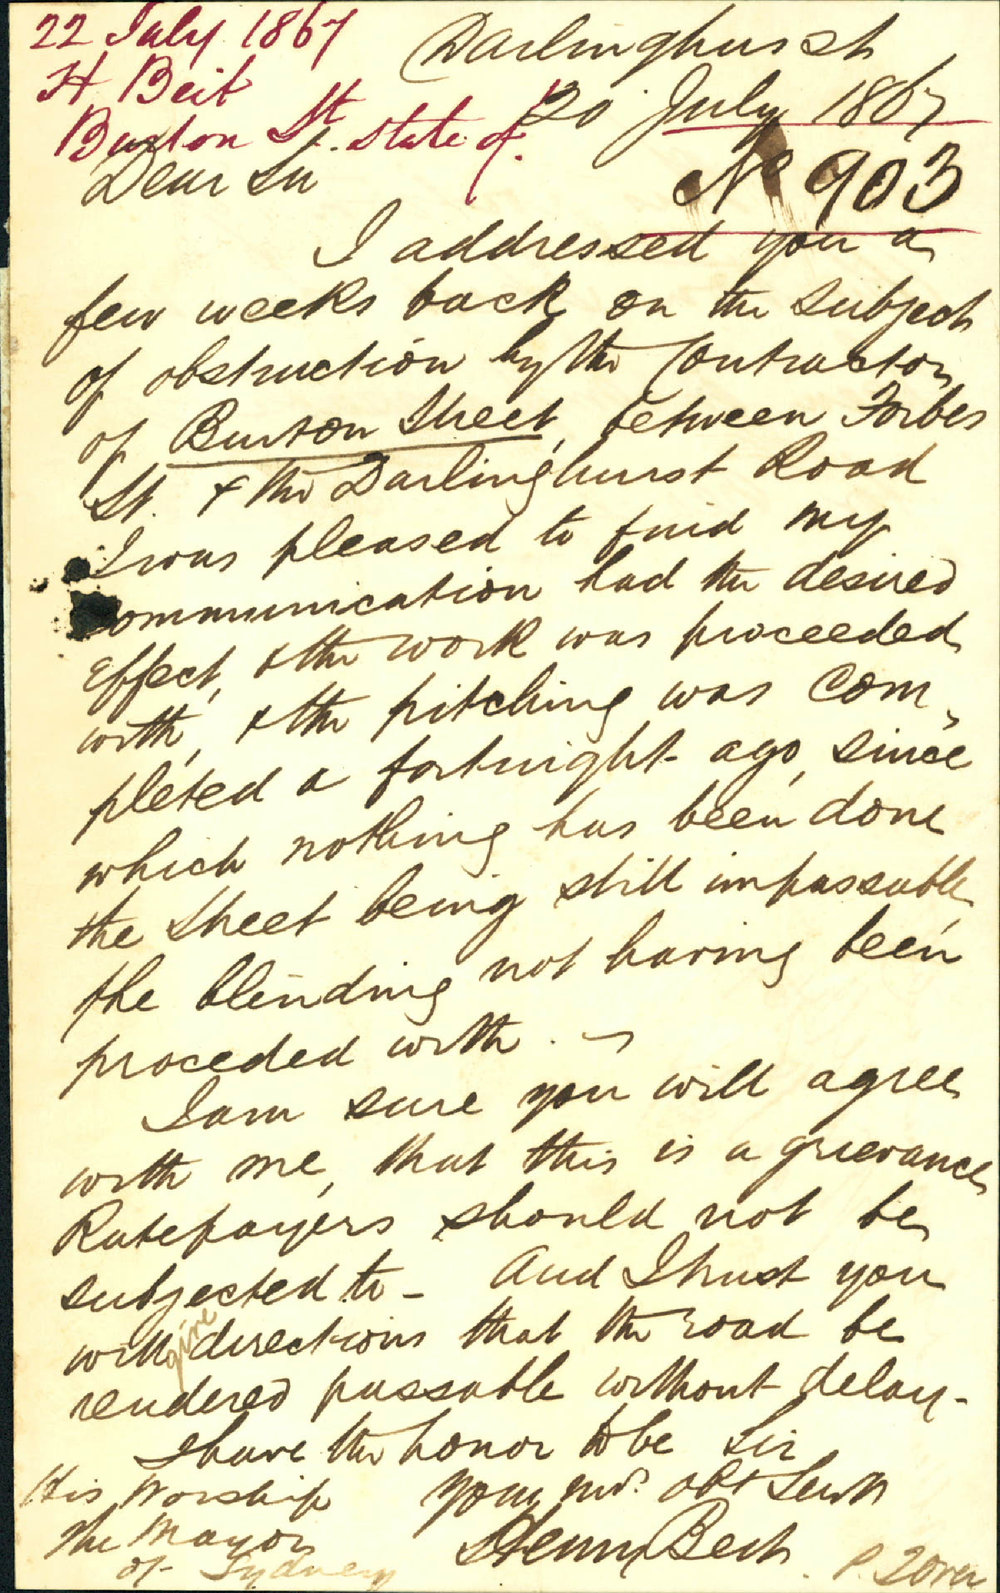 22 July 1867
H. Beit
Burton St. state of.
Darlinghurst
20 July 1867
No 903
Dear Sir
I addressed you a
few weeks back, on the subject
of obstruction by the Contractor,
of Burton Street, between Forbes
St. & the Darlinghurst Road
I was pleased to find my
communication had the desired
effect, & the work was proceeded
with, & the pitching was com,
pleted a fortnight ago, since
which nothing has been done
the Street being still impassable,
the blinding not having been
proceded with. -
I am sure you will agree
with me, that this is a grievance
Ratepayers should not be
subjected to - And I trust you
will give directions that the road be
rendered passable without delay -
I have the honor to be Sir
Your obt Servt
Henry Beit
His Worship
the Mayor
of Sydney
P. Over